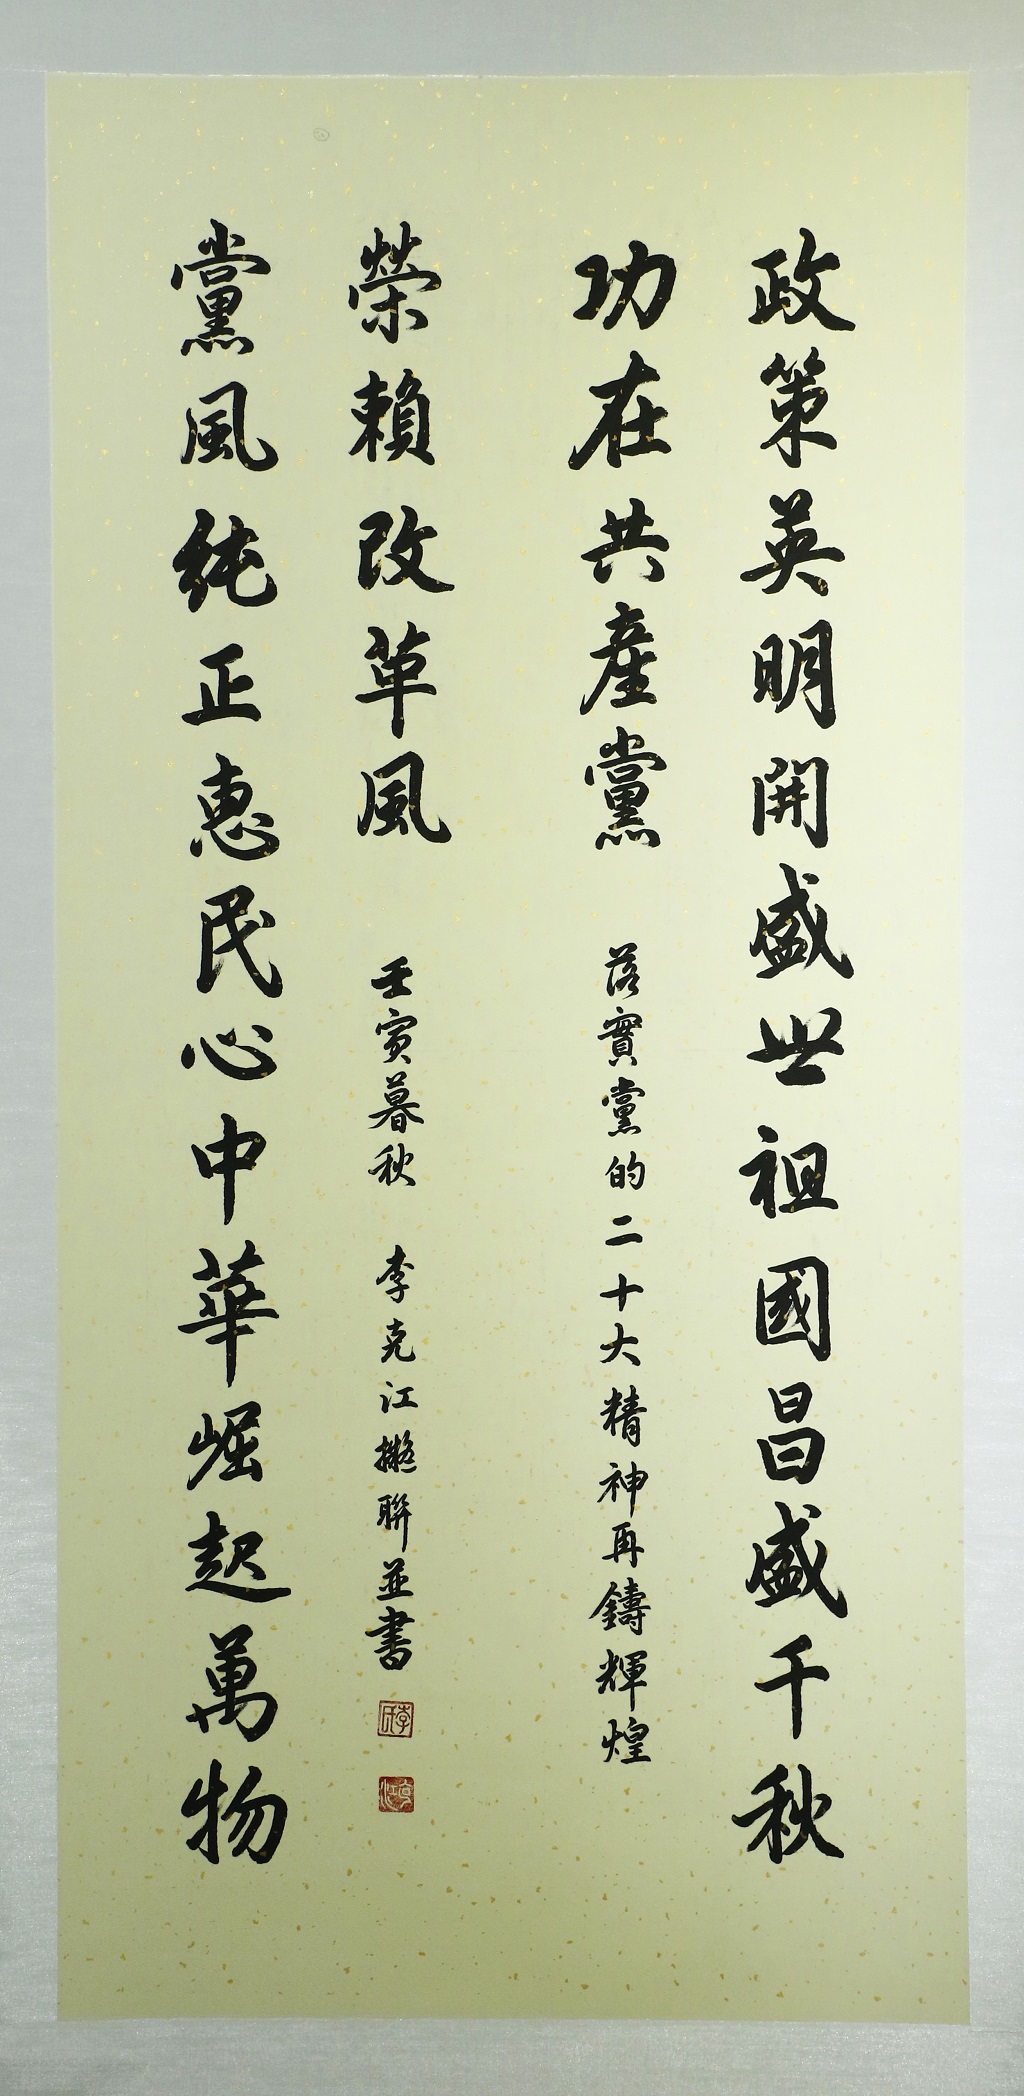 政策英明開盛世祖國昌盛千秋
功在共産黨
落實黨的二十大精神再鑄輝煌
黨風純正惠民心中華崛起萬物
榮賴改革風
壬寅暮秋 李克江擬聯並書
李氏
克江